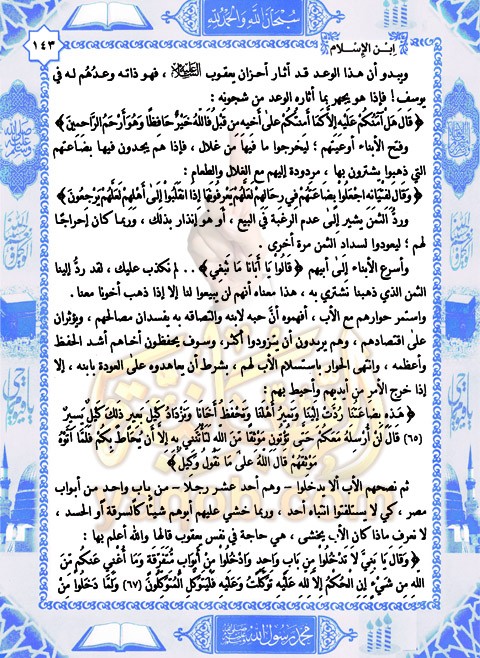 سبحان الله والحمد لله
ابن الإسلام
١٤٣
ويبدو أن هذا الوعد قد أثار أحزان يعقوب عليه السلام ، فهو ذاته وعدهم له في
يوسف ! فإذا هو يجهر بما أثاره الوعد من شجونه :
﴿ قَالَ هَلْ آمَنُكُمْ عَلَيْهِ إِلَّا كَمَا أَمِنتُكُمْ عَلَى أَخِيهِ مِن قَبْلُ فَاللَّهُ خَيْرٌ حَافِظًا وَهُوَ أَرْحَمُ الرَّاحِمِينَ ﴾
وفتح الأبناء أوعيتهم ؛ ليخرجوا ما فيها من غلال ، فإذا هم يجدون فيها بضاعتهم
التي ذهبوا يشترون بها ، مردودة إليهم مع الغلال والطعام :
﴿ وَقَالَ لِفِتْيَانِهِ اجْعَلُوا بِضَاعَتَهُمْ فِي رِحَالِهِمْ لَعَلَّهُمْ يَعْرِفُونَهَا إِذَا انقَلَبُوا إِلَى أَهْلِهِمْ لَعَلَّهُمْ يَرْجِعُونَ ﴾
ورد الثمن يشير إلى عدم الرغبة في البيع ، أو هو إنذار بذلك ، وربما كان إحراجًا
لهم ؛ ليعودوا لسداد الثمن مرة أخرى .
وأسرع الأبناء إلى أبيهم ﴿ قَالُوا يَا أَبَانَا مَا نَبْغِي ﴾ . . لم نكذب عليك ، لقد رد إلينا
الثمن الذي ذهبنا نشتري به ، هذا معناه أنهم لن يبيعوا لنا إلا إذا ذهب أخونا معنا .
واستمر حوارهم مع الأب ، أفهموه أن حبه لابنه والتصاقه به يفسدان مصالحهم ، ويؤثران
على اقتصادهم ، وهم يريدون أن يتزودوا أكثر، وسوف يحفظون أخاهم أشد الحفظ
وأعظمه ، وانتهى الحوار باستسلام الأب لهم ، بشرط أن يعاهدوه على العودة بابنه ، إلا
إذا خرج الأمر من أيديهم وأحيط بهم :
﴿ هَذِهِ بِضَاعَتُنَا رُدَّتْ إِلَيْنَا وَنَمِيرُ أَهْلَنَا وَنَحْفَظُ أَخَانَا وَنَزْدَادُ كَيْلَ بَعِيرٍ ذَلِكَ كَيْلٌ يَسِيرٌ
(٦٥) قَالَ لَنْ أُرْسِلَهُ مَعَكُمْ حَتَّى تُؤْتُونِ مَوْثِقًا مِّنَ اللَّهِ لَتَأْتُنَّنِي بِهِ إِلَّا أَن يُحَاطَ بِكُمْ فَلَمَّا آتَوْهُ
مَوْثِقَهُمْ قَالَ اللَّهُ عَلَى مَا نَقُولُ وَكِيلٌ ﴾
ثم نصحهم الأب ألا يدخلوا – وهم أحد عشر رجلا – من باب واحد من أبواب
مصر، كي لا يستلفتوا انتباه أحد ، وربما خشي عليهم أبوهم شيئًا كالسرقة أو الحسد ،
لا نعرف ماذا كان الأب يخشى ، هي حاجة في نفس يعقوب قالها والله أعلم بها :
﴿ وَقَالَ يَا بَنِيَّ لَا تَدْخُلُوا مِن بَابٍ وَاحِدٍ وَادْخُلُوا مِنْ أَبْوَابٍ مُّتَفَرِّقَةٍ وَمَا أُغْنِي عَنكُم مِّنَ
اللَّهِ مِن شَيْءٍ إِنِ الْحُكْمُ إِلَّا لِلَّهِ عَلَيْهِ تَوَكَّلْتُ وَعَلَيْهِ فَلْيَتَوَكَّلِ الْمُتَوَكِّلُونَ (٦٧) وَلَمَّا دَخَلُوا مِنْ
محمد رسول الله